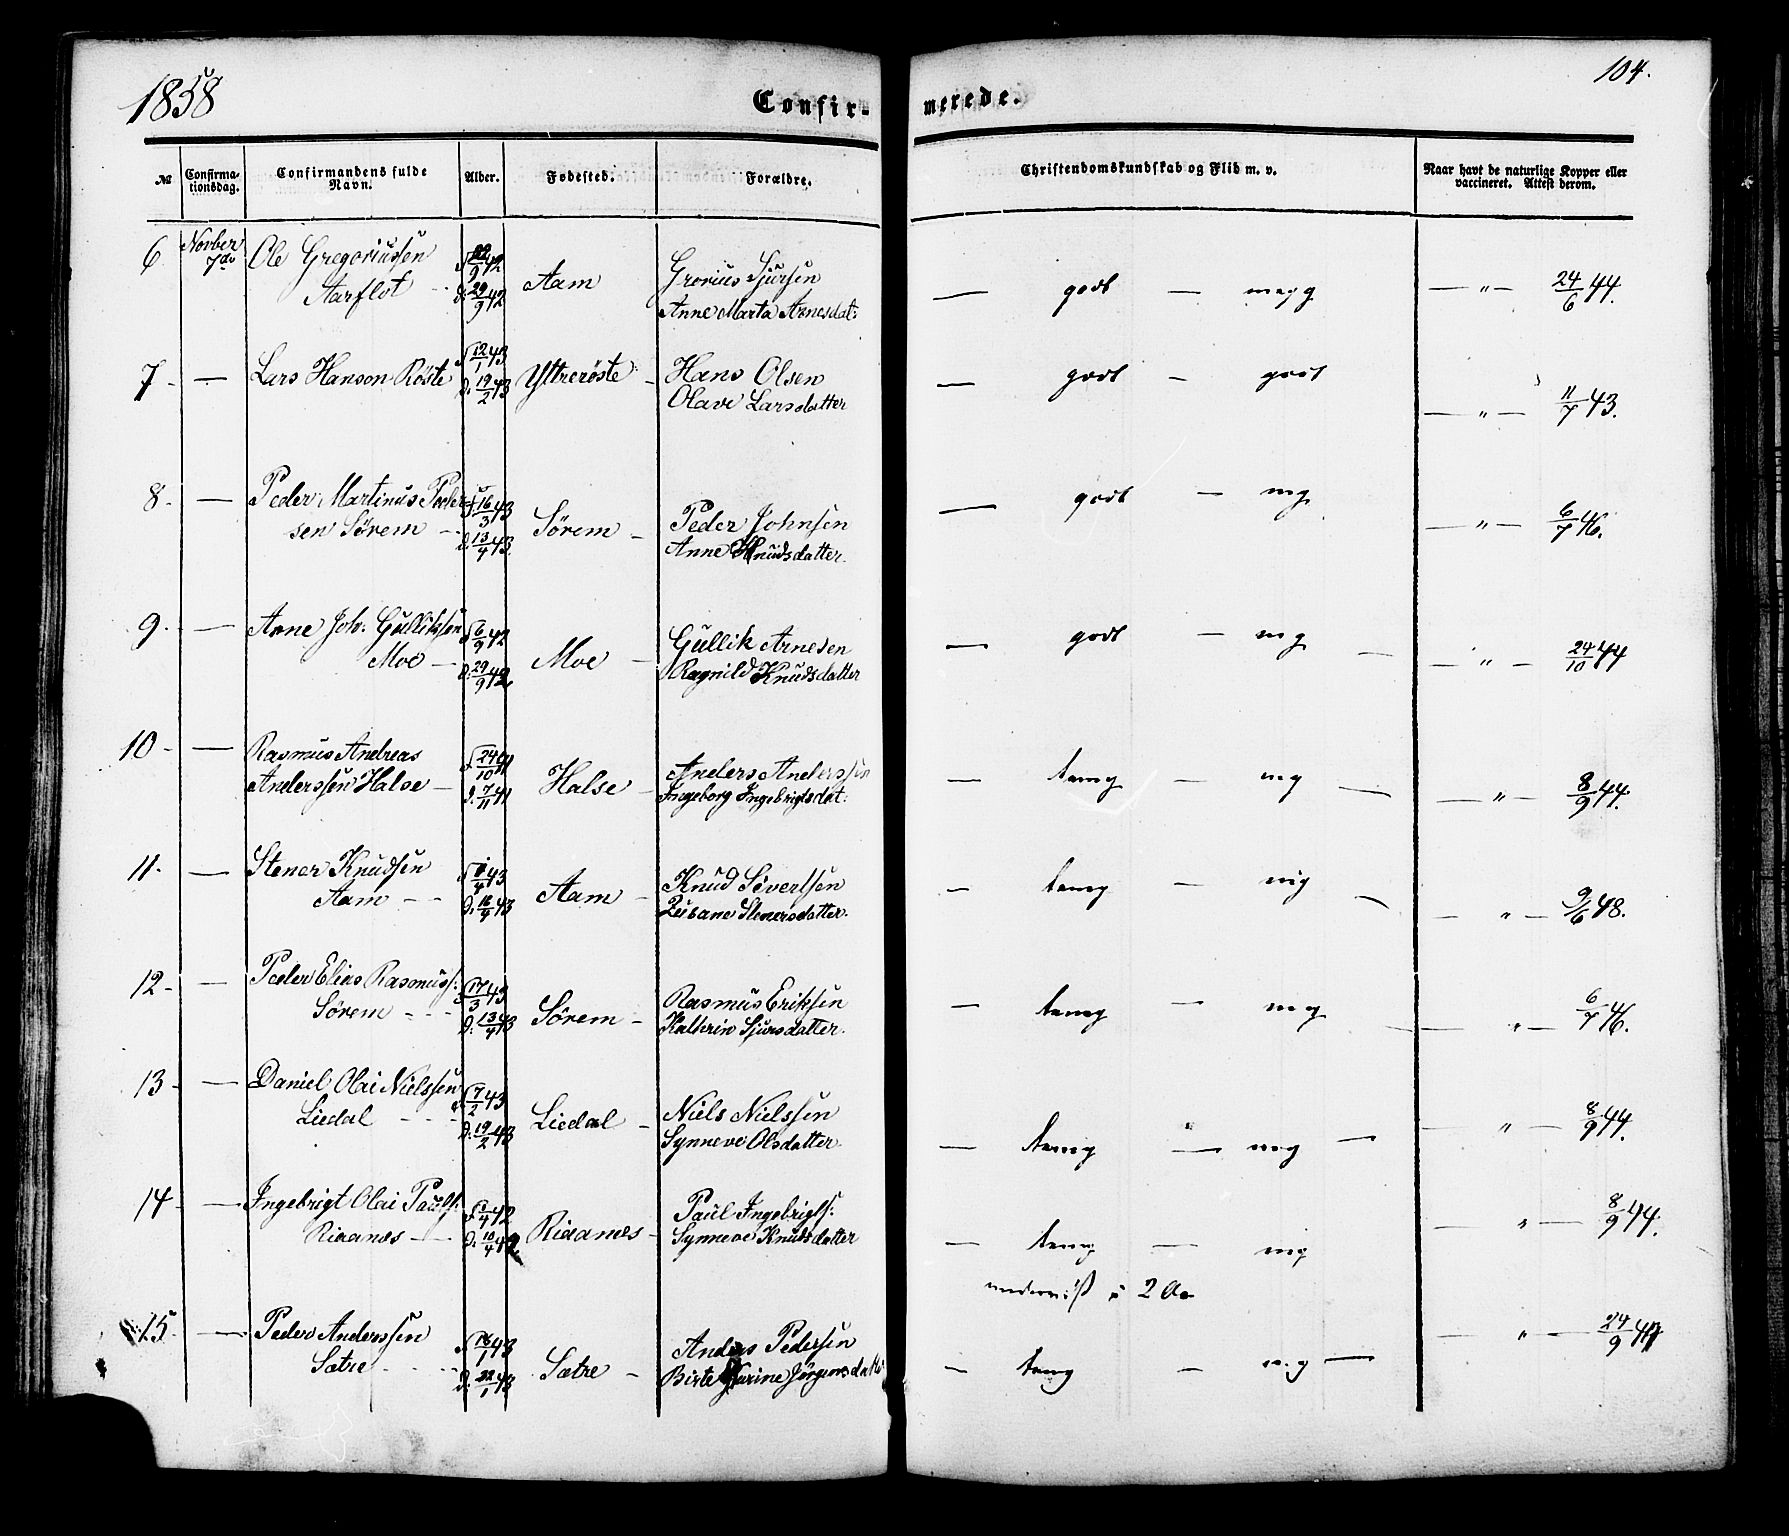 1858
Confir-
merede.
104.
№
Confirma-
tionsdag.
Confirmandens fulde
Navn.
Alder.
Fødested.
Forældre.
Christendomskundskab og Flid m. v.
Naar havt de naturlige Kopper eller
vaccineret. Attest derom.
6 Novber Ole Gregoriussen
7de Aarflot - - Aam Grorius Sjursen
d: 29/9 42 Anne Marta Arnesdat:
— godt — megg — " — 24/6 44.
7 - — Lars Hanson Röste f 12/1 43 Yttreröste - Hans Olsen
d: 19/2 43 Olave Larsdatter
— godt — godt — " — 11/7 43.
8 - — Peder Martinus Peder f 16/3 43
sen Sörem - - d: 13/4 43 Sörem - Peder Johnsen
Anne Knudsdatter.
— godt — mg — " — 6/7 46.
9. — Arne Joh: Gulliksen f 6/9 42
Moe - d: 29/9 42 Moe - Gullik Arnesen
Ragnild Knudsdatter
— godt — mg — — " — 24/10 44
10 - — Rasmus Andreas f 24/10 41
Anderssen Halse - d: 7/11 41 Halse - Anders Anderssen
Ingeborg Ingebrigtsdat:
— temg — mg — — " — 8/9 44.
11. — Stener Knudsen
Aam - - d: 16/4 43 Aam - Knud Sivertsen
Stenersdatter.
— temg — mg — — " — 9/6 48.
12 - — Peder Elias Rasmuss: f 17/3 43
Sörem - - - d: 13/4 43 Sörem - Rasmus Eriksen
Kathrin Sjursdatter.
— temg — mg — " — 6/7 46.
13 - — Daniel Olai Nielssen f 7/2 43
Liedal - - - d: 19/2 43 Liedal - Niels Nielssen
Synneve Olsdatter.
— temg — mg — — " — 8/9 44.
14 - — Ingebrigt Olai Pauls:
Risanæs - - d: 10/4 42 Risanæs - Paul Ingebrigts:
Synneve Knudsdatter
— temg — mg — " — 8/9 44.
underviist i 2 Aar
15 - — Peder Anderssen f 16/1 43
Sætre - - - - d: 22/1 43 Sætre - Anders Pedersen
Birte Karine Jörgensdatter
— temg — mg — — " — 24/9